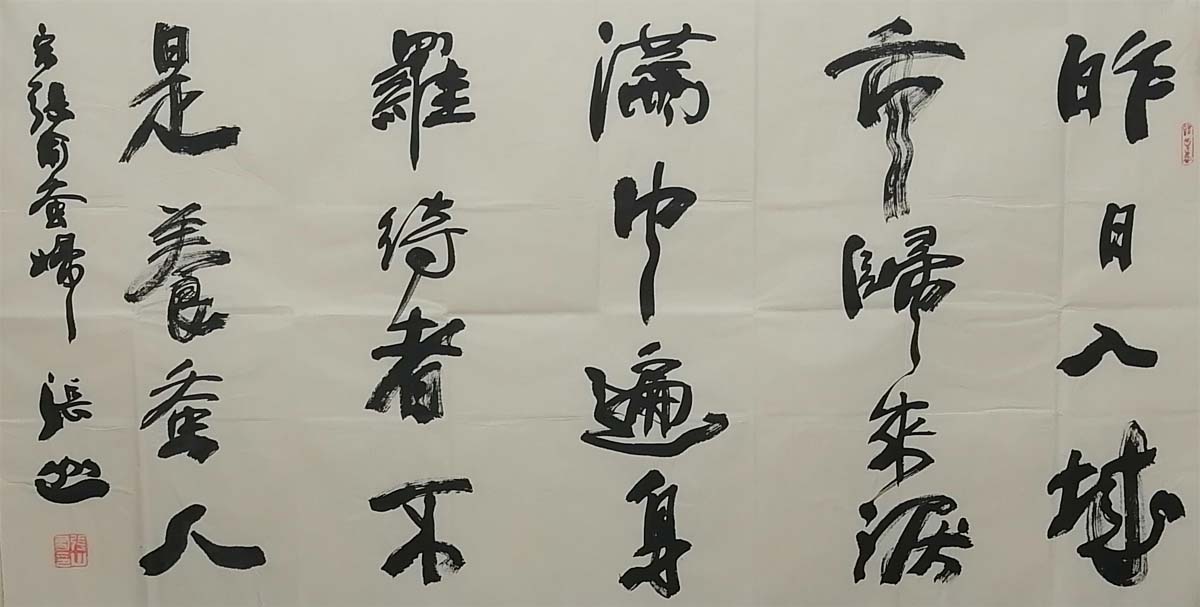 昨日入城
市歸來淚
滿巾遍身
羅綺者不
是養蚕人
宋張俞蚕婦 張